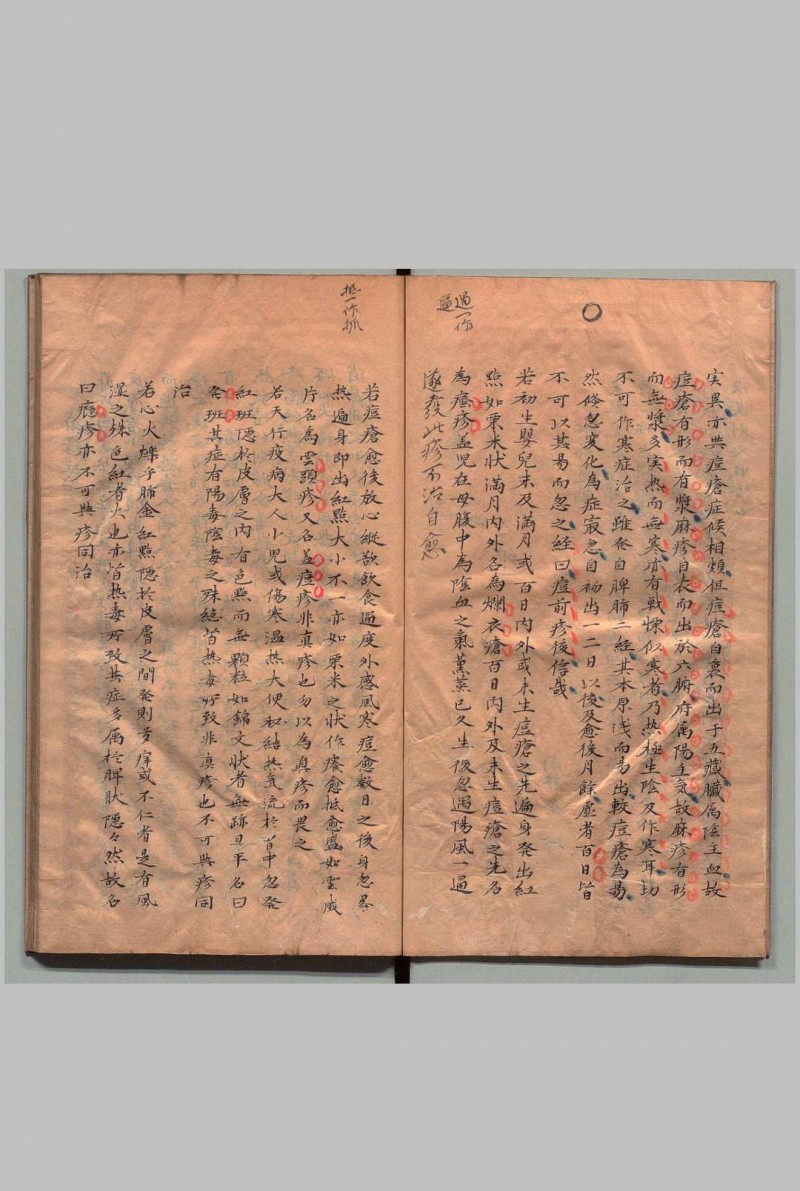 过一作
逼
実異亦與痘瘡症候相類但痘瘡自裏而出于五藏臟属陰主血故
痘瘡有形而有漿麻疹自表而出於六腑府属陽主気故麻疹有形
而無漿多実热而無寒亦有戰慄似寒者乃热極生陰及作寒耳切
不可作寒症治之雖発自脾肺二經其本原浅而易出較痘瘡為易
然倏忽変化為症寂急自初出一二日以後及愈後月餘虚者百日皆
不可以其易而忽之経曰痘前疹後信哉
若初生嬰兒未及満月或百日内外或未生痘瘡之先遍身発出紅
點如粟米狀満月内外名為爛衣瘡百日内外及未生痘瘡之先名
為瘡疹盖児在母腹中為陰血之氣薰蒸已久生後忽遇陽風一逼
遂發此疹不治自愈
抵一作抓
若痘瘡愈後放心縱欲飲食過度外感風寒痘愈數日之後身忽暴
热遍身即出紅點大小不一亦如粟米之狀作癢愈抵愈盛如雲成
片名為雲頭疹又名盖痘疹非真疹也勿以為真疹而畏之
若天行疫病大人小児或傷寒温热大便秘結热気流於胃中忽発
紅斑隱於皮膚之内有色點而無顆粒如錦文狀者無跡且平名曰
発班其症有陽毒陰毒之殊総皆热毒所致非真疹也不可與疹同
治
若心火爍乎肺金紅點隱於皮膚之間発則多痒或不仁者是有風
湿之殊色紅者火也亦皆热毒所致其症多属於脾肤隱々然故名
曰癮疹亦不可與疹同治